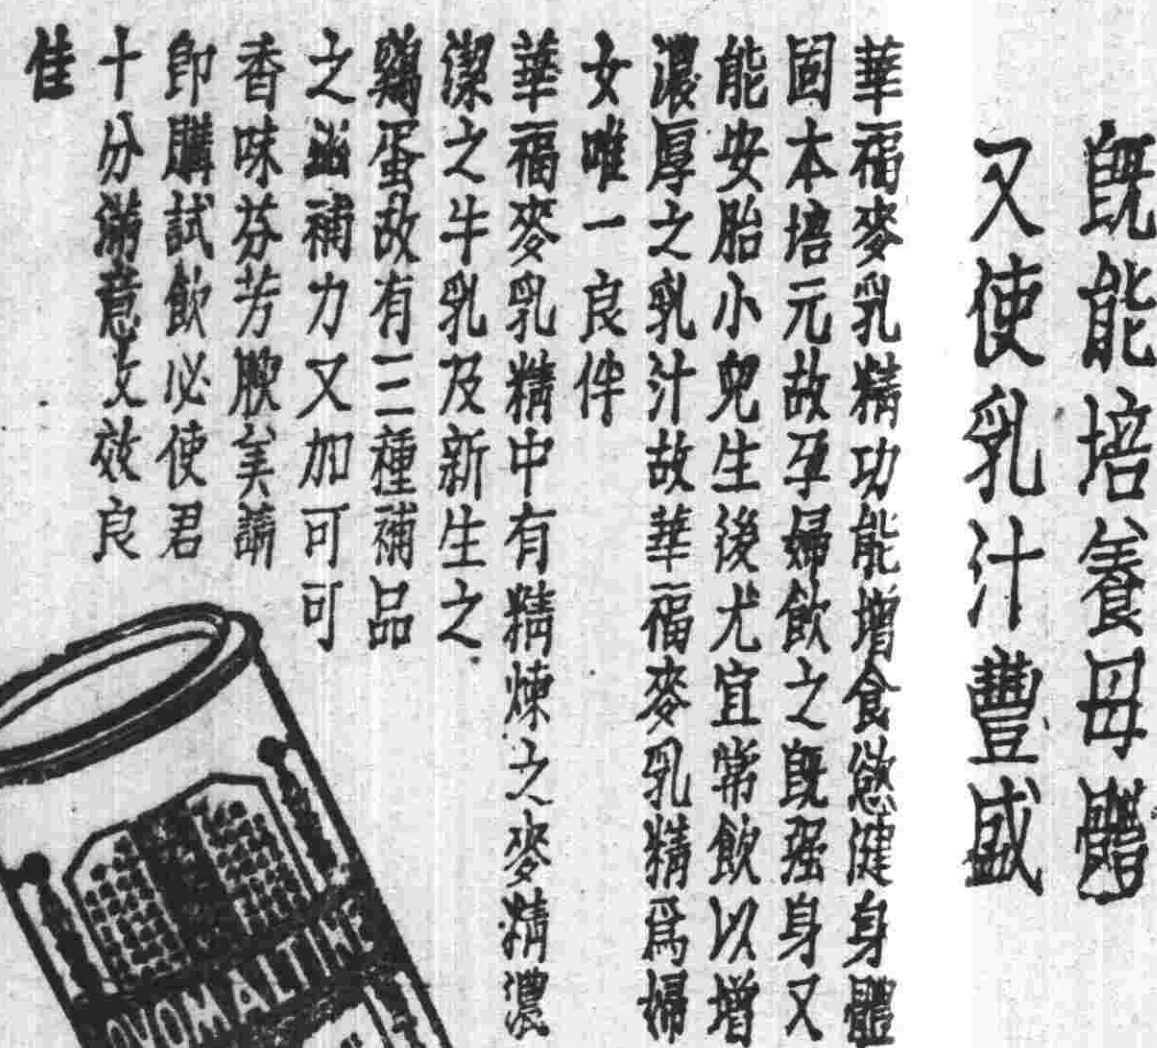 既能培養母體
又使乳汁豐盛
華福麥乳精功能增食慾健身體
固本培元故孕婦飲之既强身又
能安胎小兒生後尤宜常飲以增
濃厚之乳汁故華福麥乳精爲婦
女唯一良伴
華福麥乳精中有精煉之麥精濃
潔之牛乳及新生之
鷄蛋故有三種補品
之滋補力又加可可
香味芬芳腴美請
即購試飲必使君
十分滿意攵效良
佳
OVOMALTINE